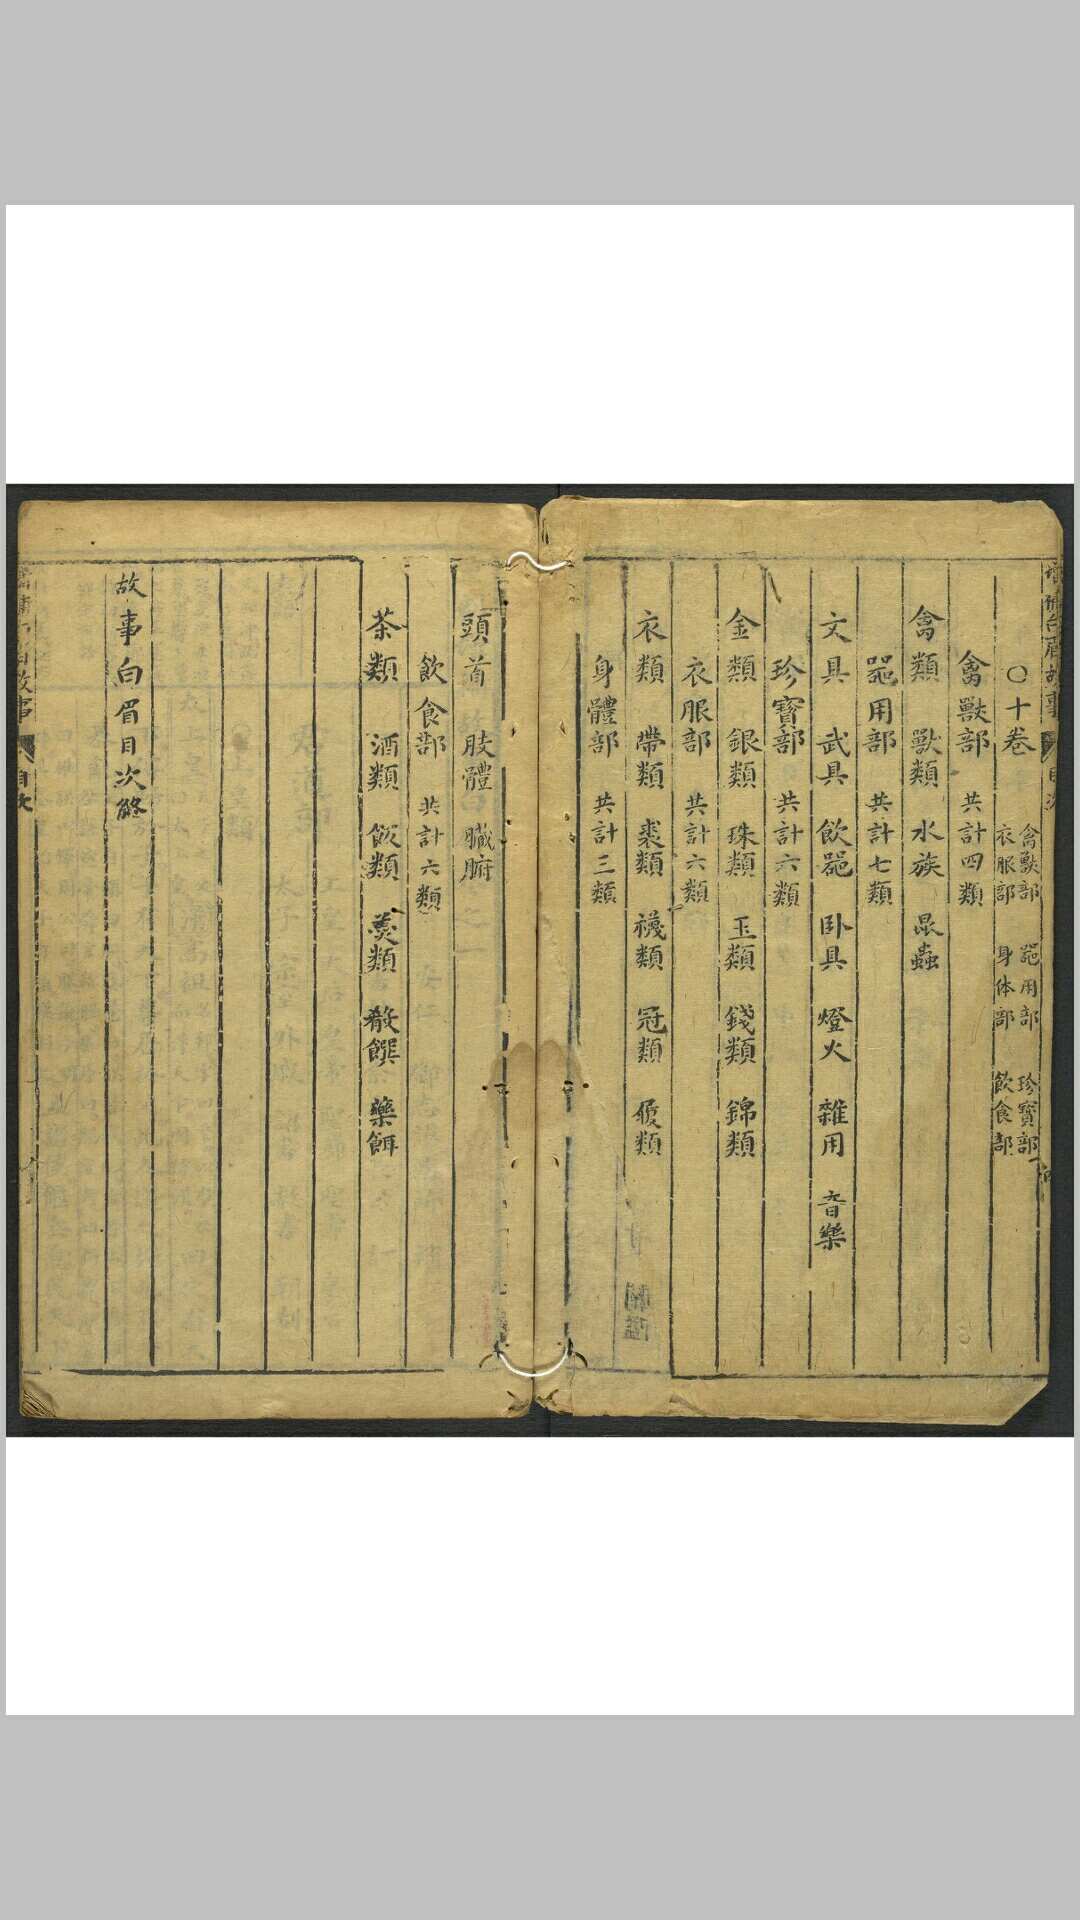 ○十卷 禽獸部 噐用部 珍寳部
衣服部 身体部 飲食部
禽獸部 共計四類
禽類 獸類 水族 昆蟲
噐用部 共計七類
文具 武具 飲噐 卧具 燈火 雜用 音樂
珍寳部 共計六類
金類 銀類 珠類 玉類 錢類 錦類
衣服部 共計六類
衣類 帶類 裘類 襪類 冠類 履類
身體部 共計三類
頭首 肢體 臓腑
飲食部 共計六類
茶類 酒類 飯類 羮類 殽饌 藥餌
故事白眉目次終
故事 目次